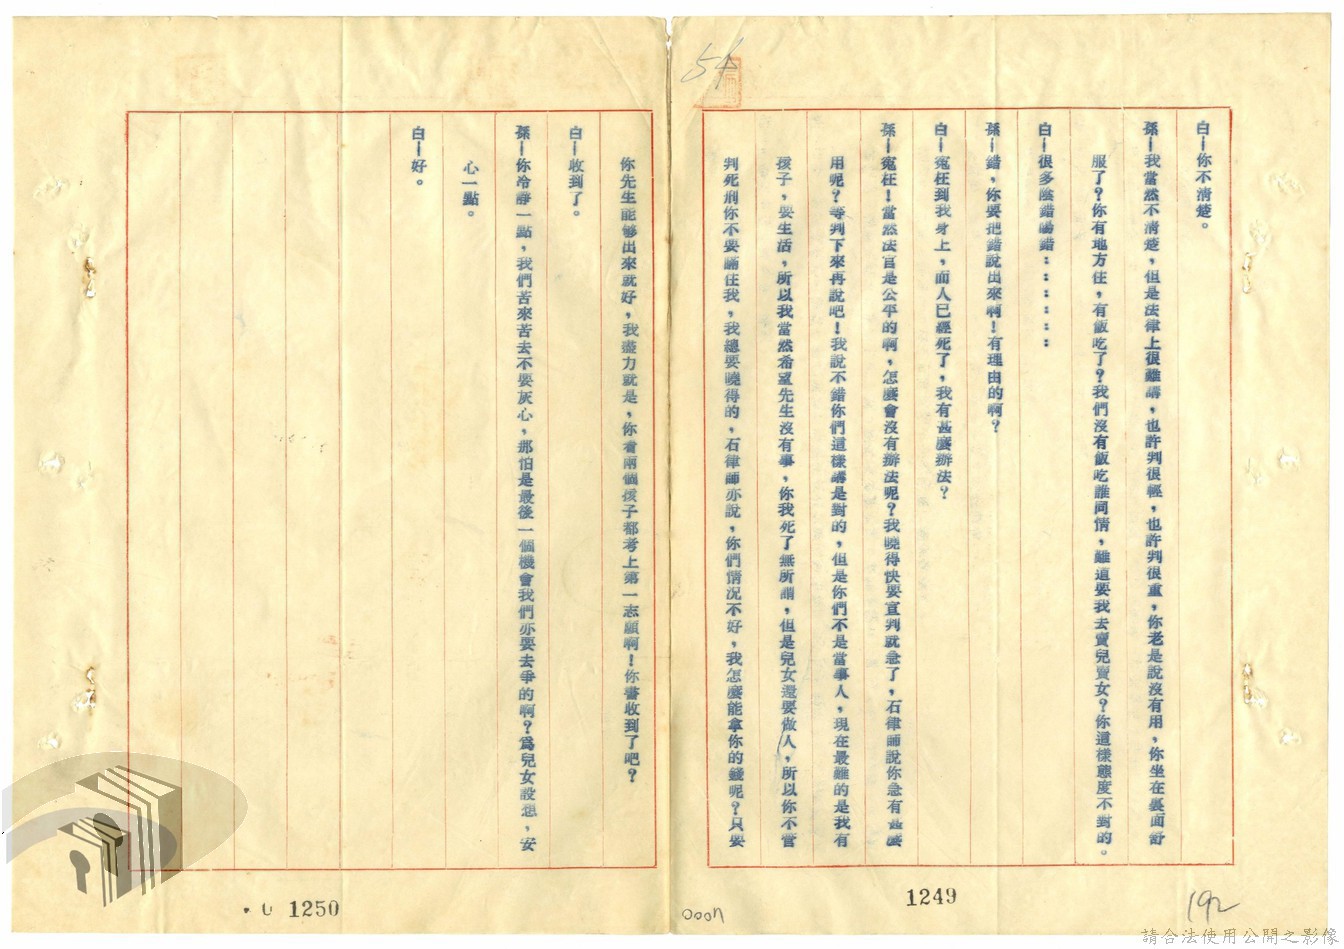 54
白—你不清楚。
孫—我當然不清楚，但是法律上很難講，也許判很輕，也許判很重，你老是說沒有用，你坐在裏面舒
服了？你有地方住，有飯吃了？我們沒有飯吃誰同情，難道要我去賣兒賣女？你這樣態度不對的。
白—很多陰錯陽錯：：：：：
孫—錯，你要把錯說出來啊！有理由的啊？
白—冤枉到我身上，而人已經死了，我有甚麼辦法？
孫—冤枉！當然法官是公平的啊，怎麼會沒有辦法呢？我曉得快要宣判就急了，石律師說你急有甚麼
用呢？等判下來再說吧！我說不錯你們這樣講是對的，但是你們不是當事人，現在最難的是我有
孩子，要生活，所以我當然希望先生沒有事，你我死了無所謂，但是兒女還要做人，所以你不管
判死刑你不要瞞住我，我總要曉得的，石律師亦說，你們情況不好，我怎麼能拿你的錢呢？只要
你先生能够出來就好，我盡力就是，你看兩個孩子都考上第一志願啊！你書收到了吧？
白—收到了。
孫—你冷靜一點，我們苦來苦去不要灰心，那怕是最後一個機會我們亦要去爭的啊？爲兒女設想，安
心一點。
白—好。
1249
192
1250
請合法使用公開之影像